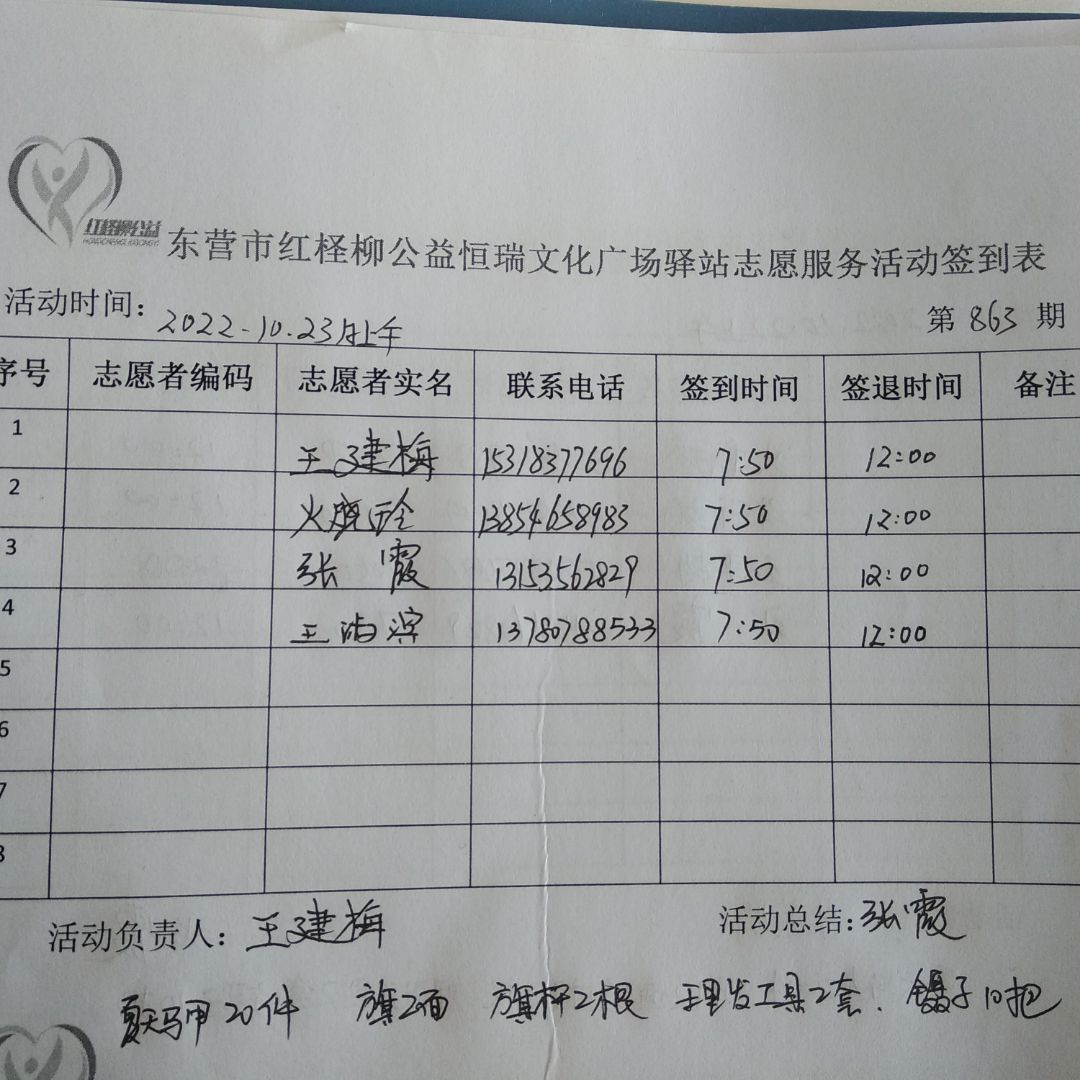 红柽柳公益
东营市红柽柳公益恒瑞文化广场驿站志愿服务活动签到表
活动时间：2022-10.23日上午 第 863 期
序号 志愿者编码 志愿者实名 联系电话 签到时间 签退时间 备注
1 王建梅 15318377696 7:50 12:00
2 13854658983 7:50 12:00
3 张霞 13153562829 7:50 12:00
4 王 滨 13780788533 7:50 12:00
5
6
7
8
活动负责人：王建梅 活动总结：张霞
夏天马甲20件 旗2面 旗杆2根 理发工具2套. 镊子10把